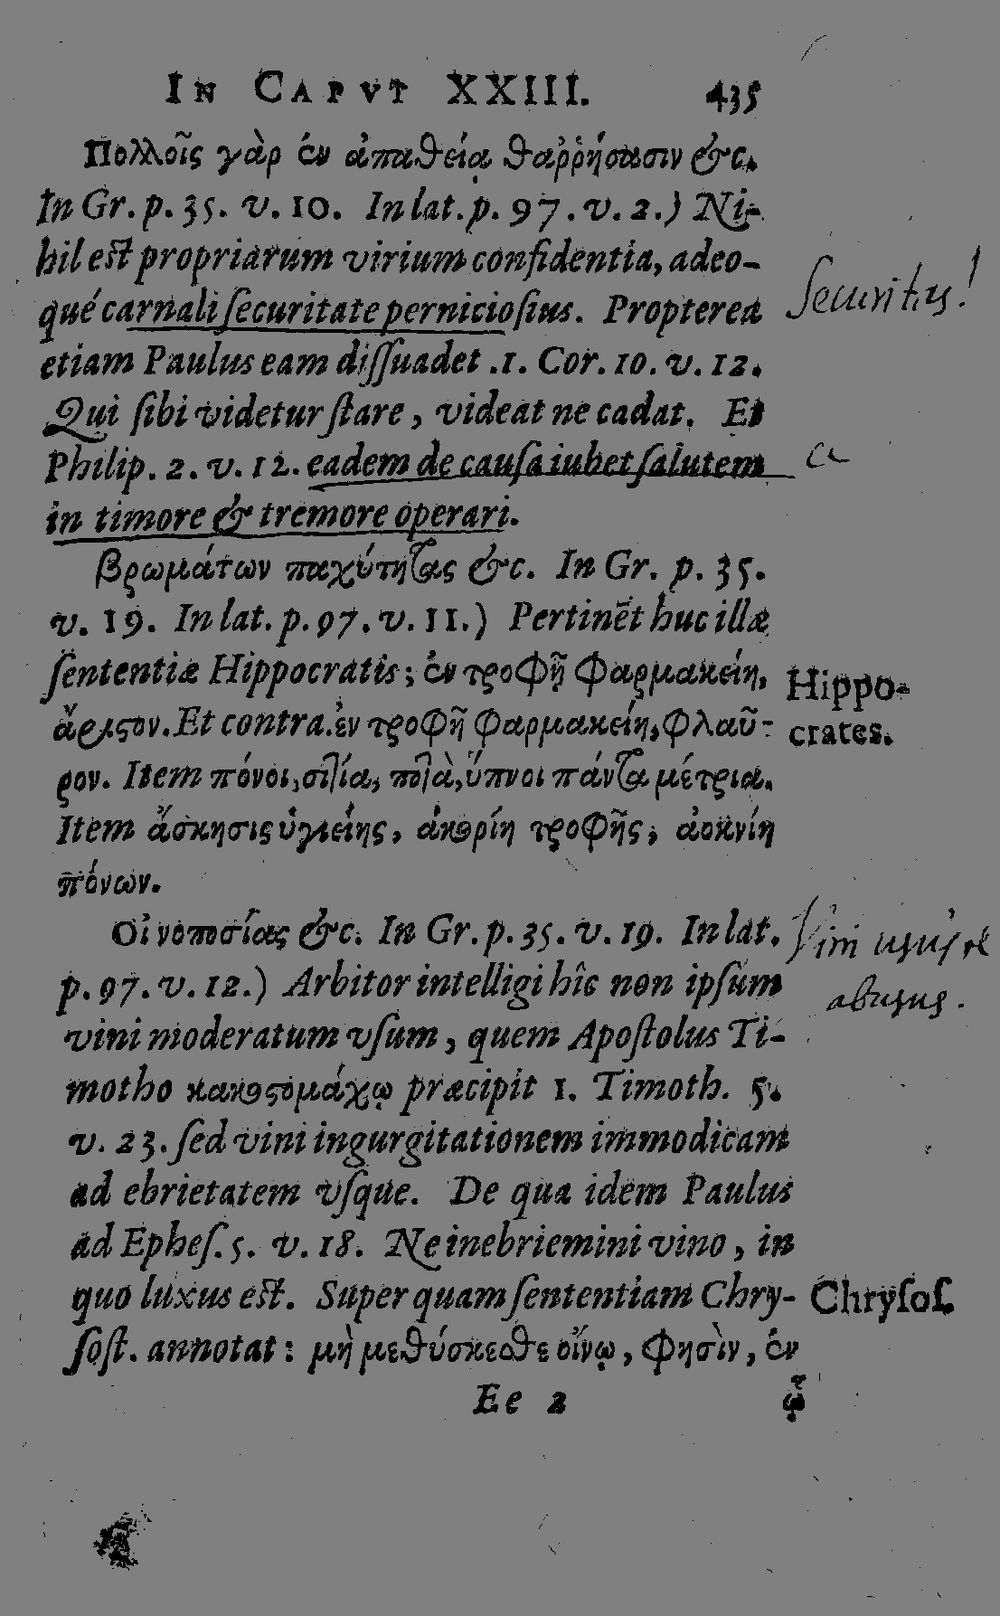 IN CAPVT XXIII. 435
Πολλοῖς γὰρ ἐν ἀπαθείᾳ θαῤῥήσασιν &c.
In Gr. p. 35. v. 10. In lat. p. 97. v. 2.) Ni-
hil est propriarum virium confidentia, adeo-
qué carnali ſecuritate pernicioſius. Propterea
Securitas!
etiam Paulus eam diſſuadet .1. Cor. 10. v. 12.
Qui ſibi videtur ſtare, videat ne cadat. Et
Philip. 2. v. 12. eadem de cauſa iubet ſalutem
in timore & tremore operari.
βρωμάτων παχύτητας &c. In Gr. p. 35.
v. 19. In lat. p. 97. v. 11.) Pertinēt huc illæ
ſententiæ Hippocratis; ἐν τροφῇ φαρμακείη,
Hippo-
ἄριστον. Et contra. ἐν τροφῇ φαρμακείη, φλαῦ-
crates.
ρον. Item πόνοι, σιτία, ποτὰ, ὕπνοι πάντα μέτρια.
Item ἄσκησις ὑγιείης, ἀκορίη τροφῆς, ἀοκνίη
πόνων.
Οἰνοποσίας &c. In Gr. p. 35. v. 19. In lat.
Vini usus et
p. 97. v. 12.) Arbitor intelligi hîc non ipſum
abusus.
vini moderatum vſum, quem Apoſtolus Ti-
motho κακοστομάχῳ præcipit 1. Timoth. 5.
v. 23. ſed vini ingurgitationem immodicam
ad ebrietatem vſque. De qua idem Paulus
ad Epheſ. 5. v. 18. Ne inebriemini vino, in
quo luxus est. Super quam ſententiam Chry-
Chryſoſ.
ſoſt. annotat: μὴ μεθύσκεσθε οἴνῳ, φησὶν, ἐν
Ee 2 ᾧ